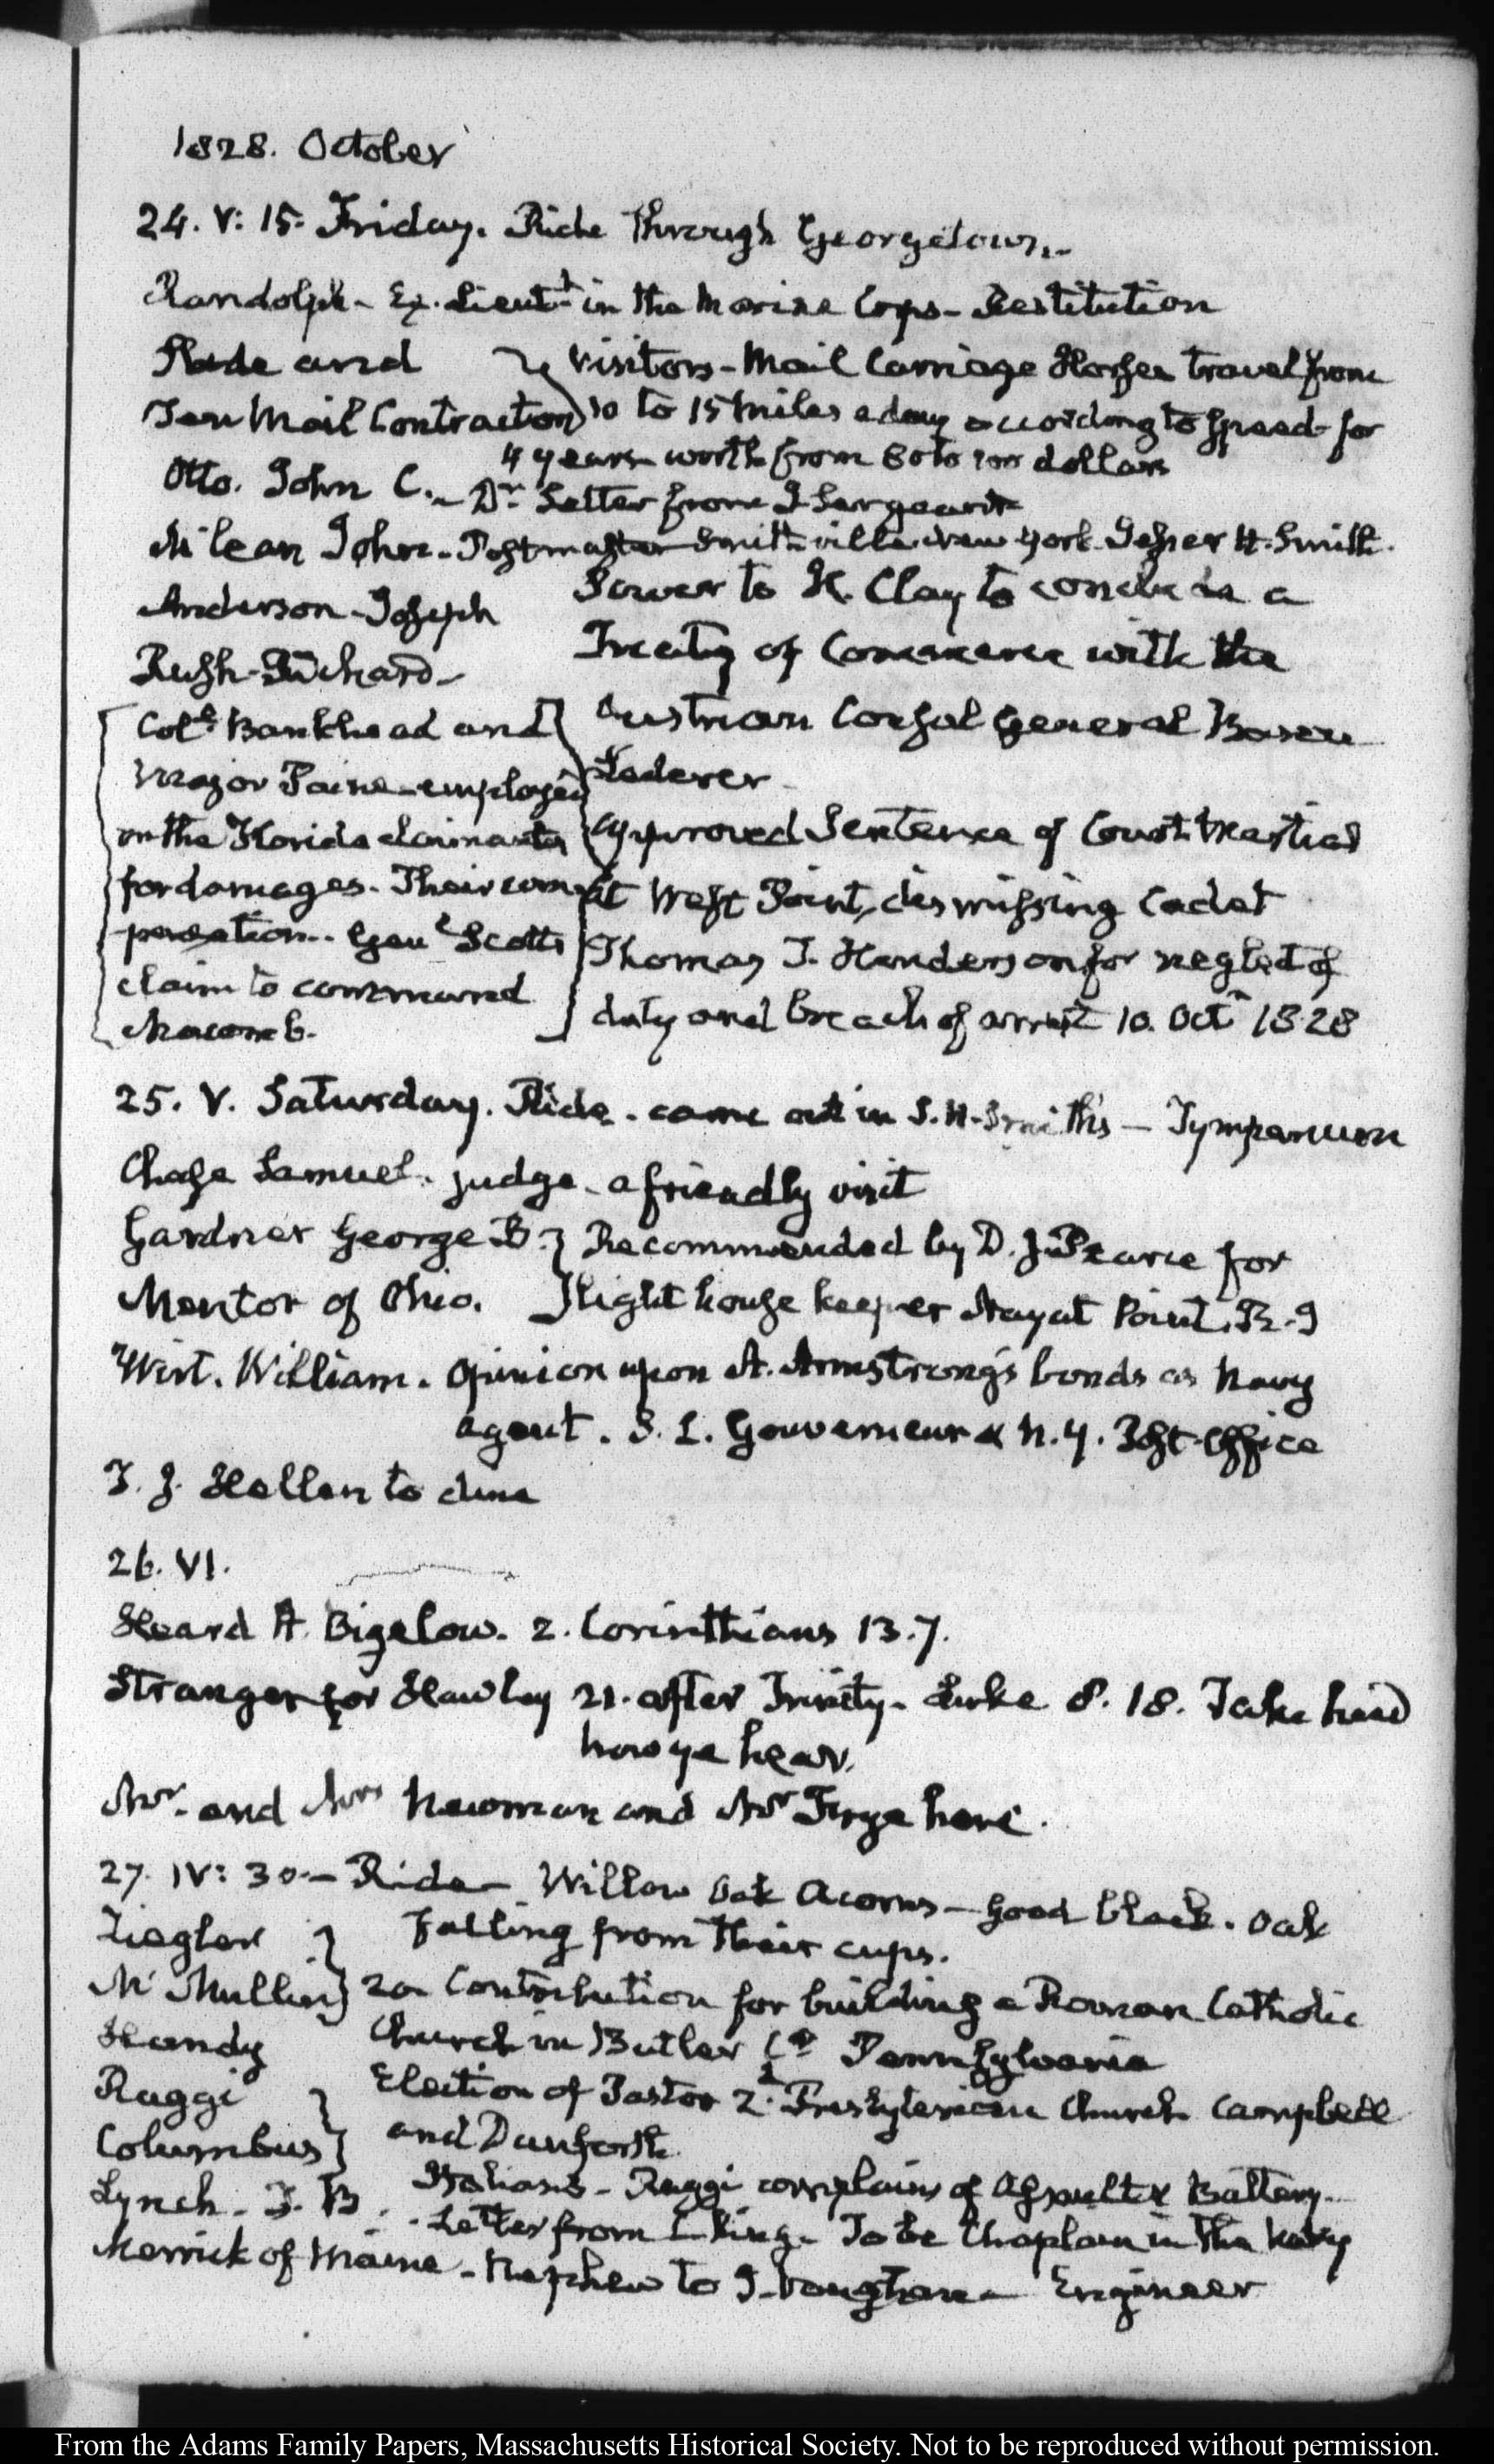 1828. October
24. V: 15. Friday. Ride through Georgetown.
Randolph - Ex. Lieutt. in the Marine Corps - Restitution
and } Visitors - Mail Carriage Horses travel from
Mail Contractors 10 to 15 miles a day according to speed - for
4 years worth from 80 to 100 dollars
Otto. John C. - Dr. Letter from J Sergeant
McLean John - Postmaster Smithville New York. Jesper H. Smith.
Anderson - Joseph
Rush - Richard -
Power to H. Clay to conclude a
Treaty of Commerce with the
Austrian Consul General Baron
Lederer
Approved Sentence of Court Martial
at West Point, dismissing Cadet
Thomas J. Henderson for neglect of
duty and breach of arrest 10. Octr 1828
Coll. Bankhead and
Major Paine - employed
on the Florida claimants
for damages. Their com-
pensation. Genl Scott's
claim to command
Macomb.
25. V. Saturday. Ride - came out in S. H. Smith's - Tympanum
Chase Samuel. judge - a friendly visit
Gardner George B. } Recommended by D. J. Pearce for
Mentor of Ohio. Light house keeper Nayat Point. R. I
Wirt. William. Opinion upon A. Armstrong's bonds as Navy
agent. S. L. Gouverneur & N. Y. Post Office
T. J. Hellen to dine
26. VI.
Heard A. Bigelow. 2. Corinthians 13.7.
Stranger for Hawley 21. after Trinity - Luke 8. 18. Take heed
how ye hear.
Mr. and Mrs Newman and Mr Frye here.
27. IV: 30 - Ride - Willow Oak Acorns - good black. Oak
falling from their cups.
Ziegler }
McMullin } 20 Contribution for building a Roman Catholic
Church in Butler Cy Pennsylvania
Handy Election of Pastor 2d. Presbyterian Church Campbell
and Danforth
Ruggi }
Columbus } Italians - Ruggi complains of Assault & Battery -
Lynch - J. B. - Letter from C King - To be Chaplain in the Navy
Merrick of Maine - Nephew to J. Vaughan - Engineer
From the Adams Family Papers, Massachusetts Historical Society. Not to be reproduced without permission.